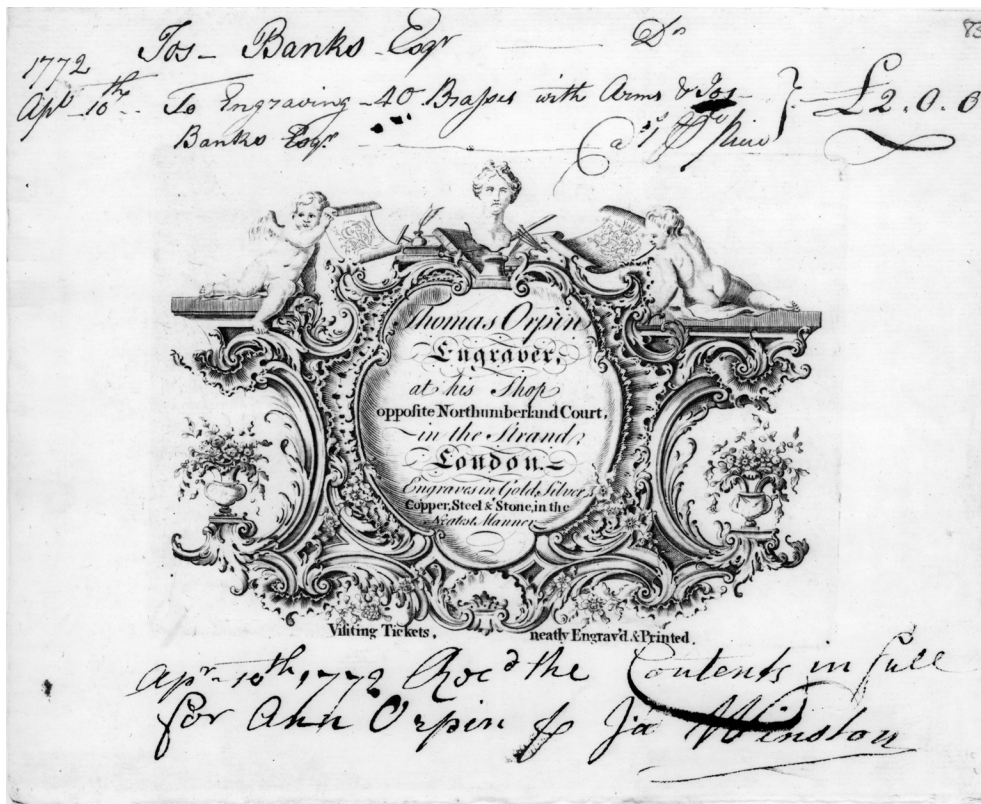 Jos- Banks Esqr Dr 83
1772
Apl 10th .. To Engraving 40 Braſses with Arms & Jos- £2.0.0
Banks Esqr
Thomas Orpin
Engraver,
at his Shop
oppoſite Northumberland Court,
in the Strand,
London.
Engraves in Gold, Silver,
Copper, Steel & Stone, in the
Neatest Manner
Viſiting Tickets,
neatly Engrav'd & Printed.
Apr. 10th, 1772 Rec'd the Contents in full
for Ann Orpin Ja Winston